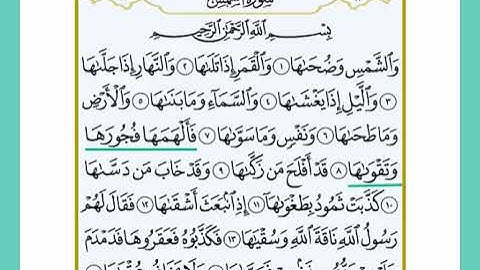 سُورَةُ الشَّمْسِ
بِسْمِ ٱللَّهِ ٱلرَّحْمَٰنِ ٱلرَّحِيمِ
وَٱلشَّمْسِ وَضُحَىٰهَا ١ وَٱلْقَمَرِ إِذَا تَلَىٰهَا ٢ وَٱلنَّهَارِ إِذَا جَلَّىٰهَا
٣ وَٱلَّيْلِ إِذَا يَغْشَىٰهَا ٤ وَٱلسَّمَآءِ وَمَا بَنَىٰهَا ٥ وَٱلْأَرْضِ
وَمَا طَحَىٰهَا ٦ وَنَفْسٍ وَمَا سَوَّىٰهَا ٧ فَأَلْهَمَهَا فُجُورَهَا
وَتَقْوَىٰهَا ٨ قَدْ أَفْلَحَ مَن زَكَّىٰهَا ٩ وَقَدْ خَابَ مَن دَسَّىٰهَا
١٠ كَذَّبَتْ ثَمُودُ بِطَغْوَىٰهَآ ١١ إِذِ ٱنۢبَعَثَ أَشْقَىٰهَا ١٢ فَقَالَ لَهُمْ
رَسُولُ ٱللَّهِ نَاقَةَ ٱللَّهِ وَسُقْيَٰهَا ١٣ فَكَذَّبُوهُ فَعَقَرُوهَا فَدَمْدَمَ